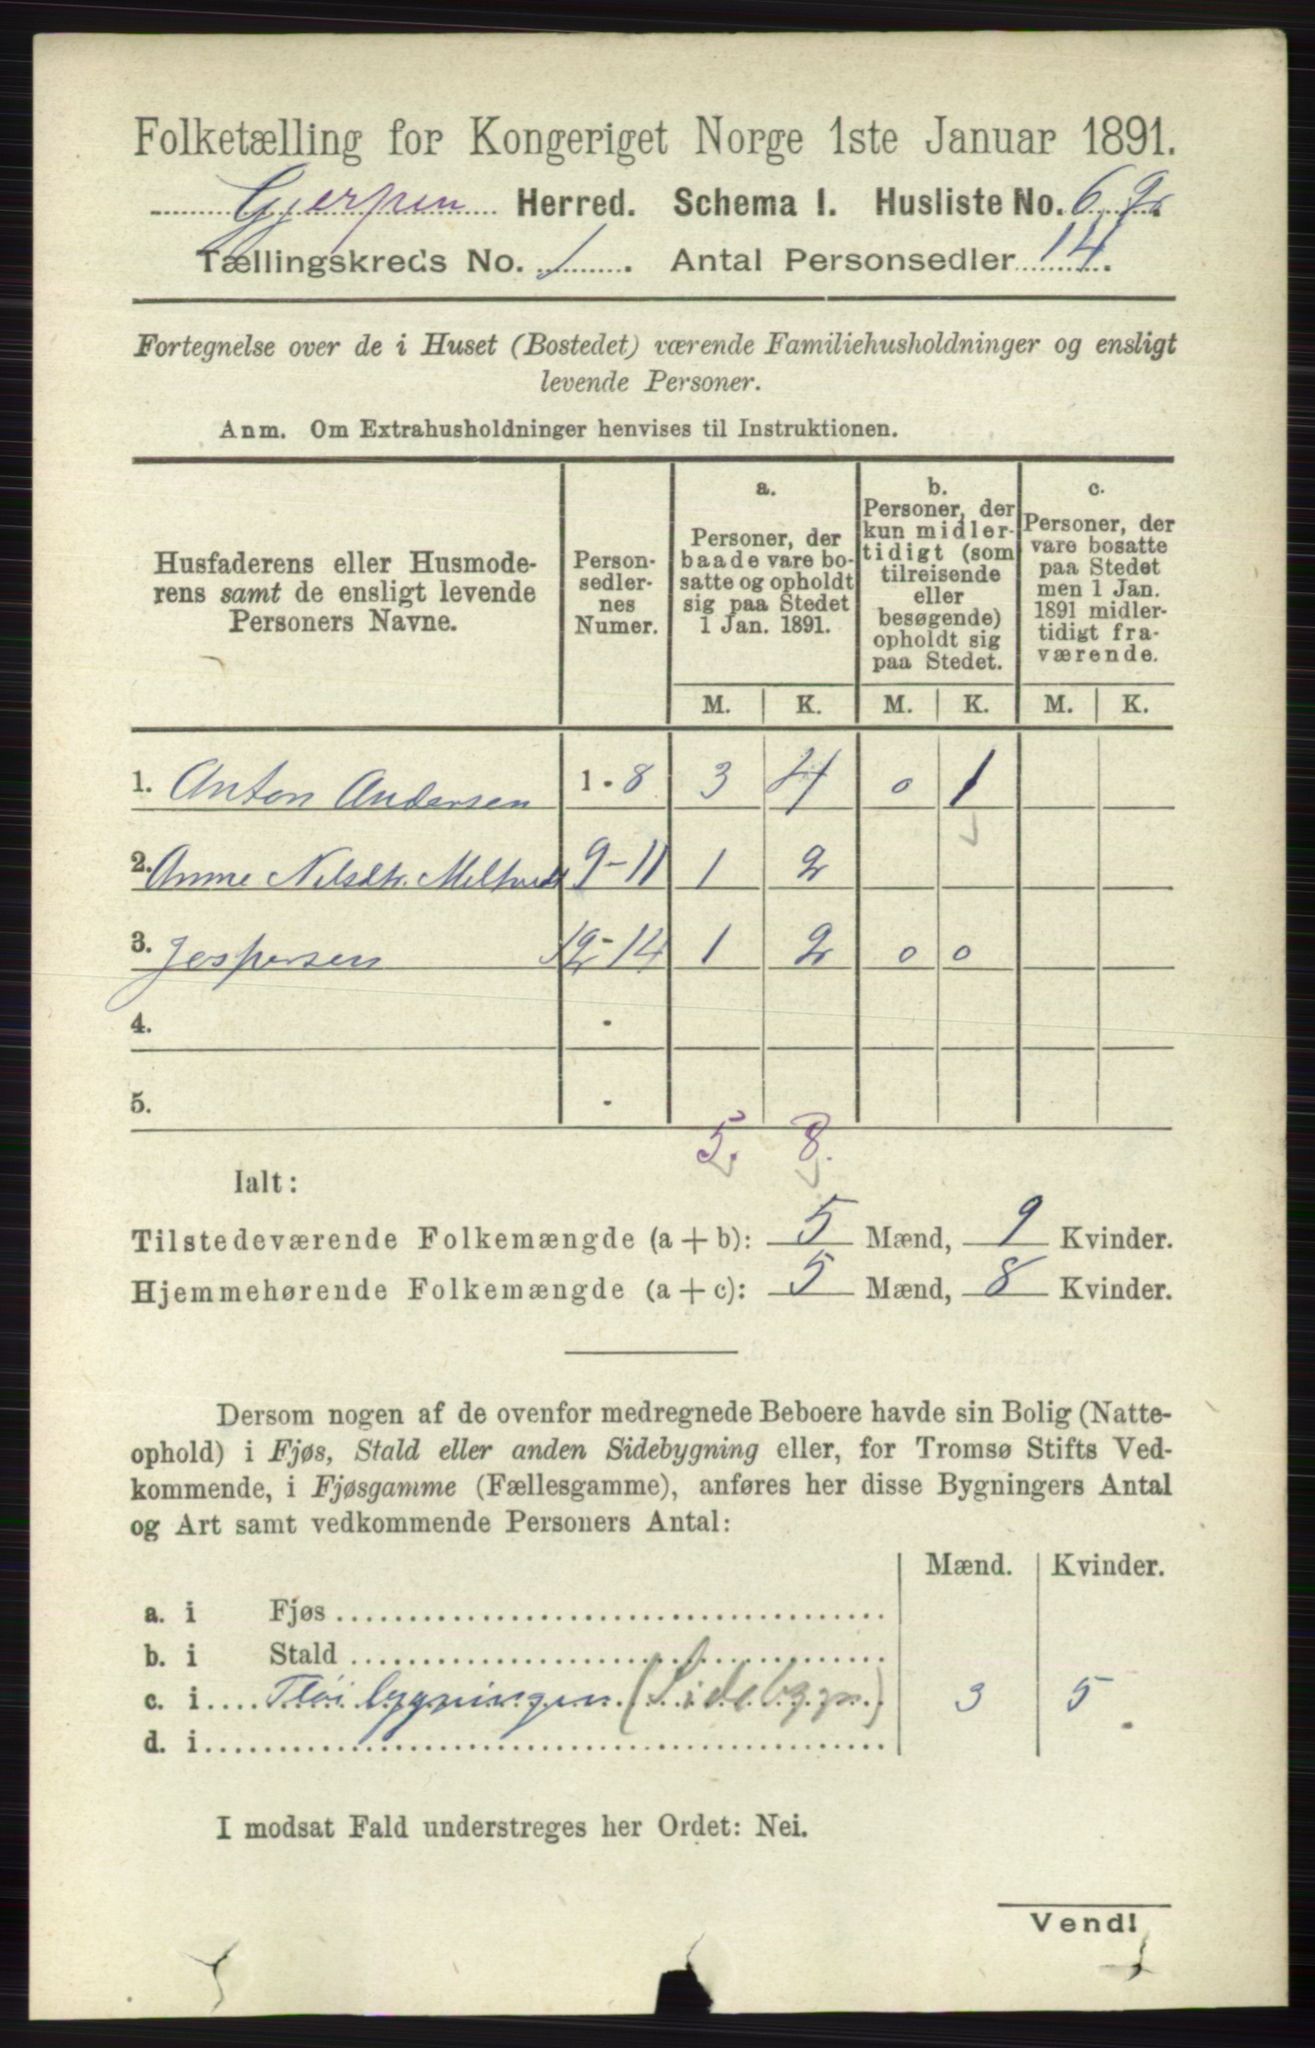 Folketælling for Kongeriget Norge 1ste Januar 1891.
Gjerpen Herred. Schema I. Husliste No. 62.
Tællingskreds No. 1. Antal Personsedler 14.
Fortegnelse over de i Huset (Bostedet) værende Familiehusholdninger og ensligt
levende Personer.
Anm. Om Extrahusholdninger henvises til Instruktionen.
Husfaderens eller Husmode-
rens samt de ensligt levende
Personers Navne.
Person-
sedler-
nes
Numer.
a.
Personer, der
baade vare bo-
satte og opholdt
sig paa Stedet
1 Jan. 1891.
b.
Personer, der
kun midler-
tidigt (som
tilreisende
eller
besøgende)
opholdt sig
paa Stedet.
c.
Personer, der
vare bosatte
paa Stedet
men 1 Jan.
1891 midler-
tidigt fra-
værende.
M. K. M. K. M. K.
1. Anton Andersen 1-8 3 4 0 1
2. Anne Nilsdtr. 9-11 1 2
3. Jespersen 12-14 1 2 0 0
4. -
5. -
5. 8.
Ialt:
Tilstedeværende Folkemængde (a + b): 5 Mænd, 9 Kvinder.
Hjemmehørende Folkemængde (a + c): 5 Mænd, 8 Kvinder.
Dersom nogen af de ovenfor medregnede Beboere havde sin Bolig (Natte-
ophold) i Fjøs, Stald eller anden Sidebygning eller, for Tromsø Stifts Ved-
kommende, i Fjøsgamme (Fællesgamme), anføres her disse Bygningers Antal
og Art samt vedkommende Personers Antal:
Mænd. Kvinder.
a. i Fjøs
b. i Stald
c. i Fløibygningen (Sidebygn.) 3 5
d. i
I modsat Fald understreges her Ordet: Nei.
Vend!